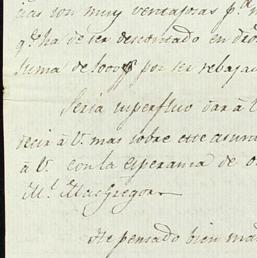 cias son muy ventajosas pa
q.e ha de ser descontado en dro
suma de 1000$ por ser rebaja
Seria superfluo dar à V
decir à V. mas sobre este asun
à V. con la Esperanza de o
M.r MacGregor
He pensado bien ma